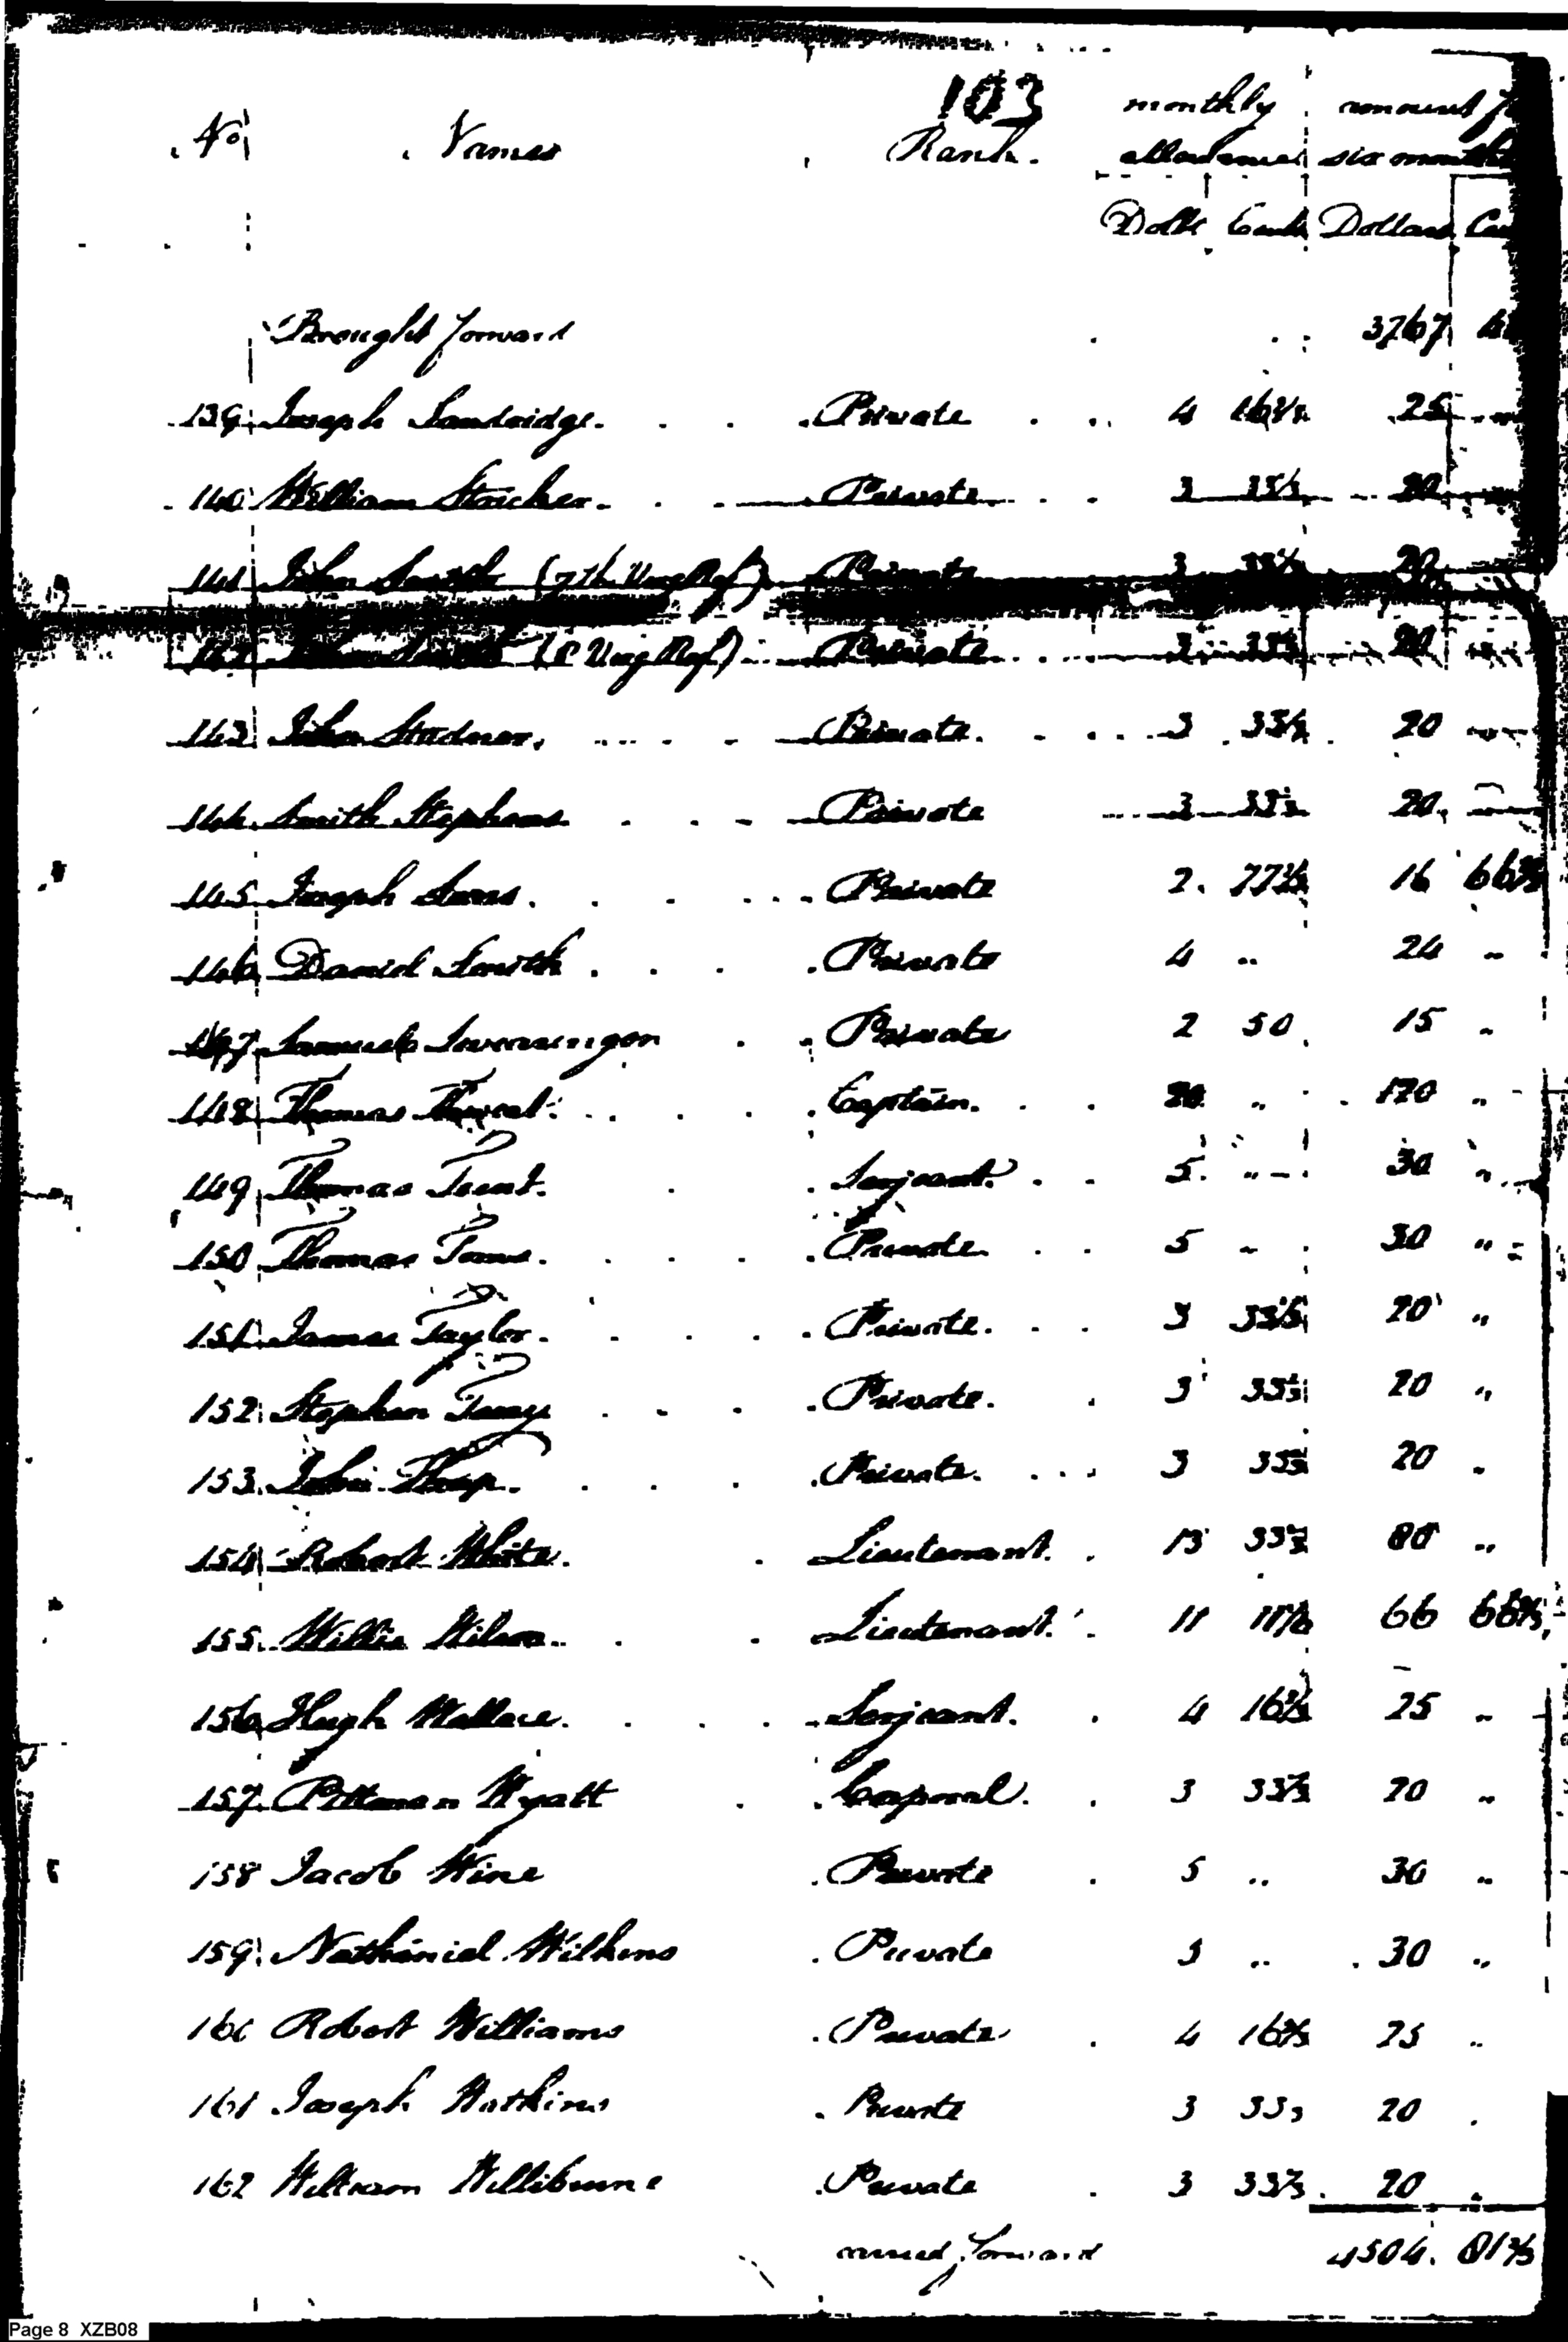 103
No Names Rank. monthly allowance amount six months
Dolls Cents Dollars
Brought forward 3767
139 Joseph Sandridge. Private 4 16 2/3 25
140 William Stricker. Private 3 33 1/3 20
141 John Smith (7th Virg Rgt) Private 3 33 1/3 20
142 John Smith (8 Virg Rgt) Private 3 33 1/3 20
143 John Studner. Private. 3 33 1/3 20
144 Smith Stephens Private 3 33 1/3 20
145 Joseph Sams. Private 2. 77 2/3 16 66 2/3
146 David Smith. Private 4 " 24 "
147 Samuel Private 2 50 15 "
148 Thomas Captain. 20 " 120 "
149 Thomas Trent. Serjeant. 5. " 30 "
150 Thomas Toms. Private. 5 " 30 "
151 James Taylor. Private. 3 33 1/3 20 "
152 Stephen Terry Private. 3 33 1/3 20 "
153 John Tharp. Private. 3 33 1/3 20 "
154 Robert White. Lieutenant. 13 33 1/3 80 "
155 Willis Wilson. Lieutenant. 11 11 1/9 66 66 2/3
156 Hugh Wallace. Serjeant. 4 16 2/3 25 "
157 Pittman Wyatt Corporal. 3 33 1/3 20 "
158 Jacob Wine Private 5 " 30 "
159 Nathaniel Wilkins Private 5 " 30 "
160 Robert Williams Private 4 16 2/3 25 "
161 Joseph Watkins Private 3 33 20
162 William Willibourne Private 3 33 1/3 20
forward 4504. 81 2/3
Page 8 XZB08